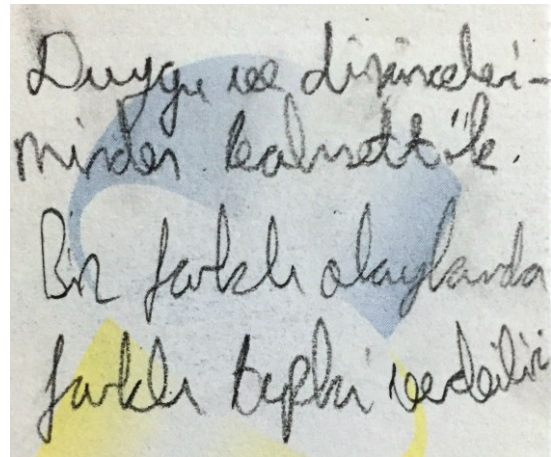 Duygu ve düşüncelerimi-
mizden bahsettik.
Biz farklı olaylarda
farklı tepki verebilir